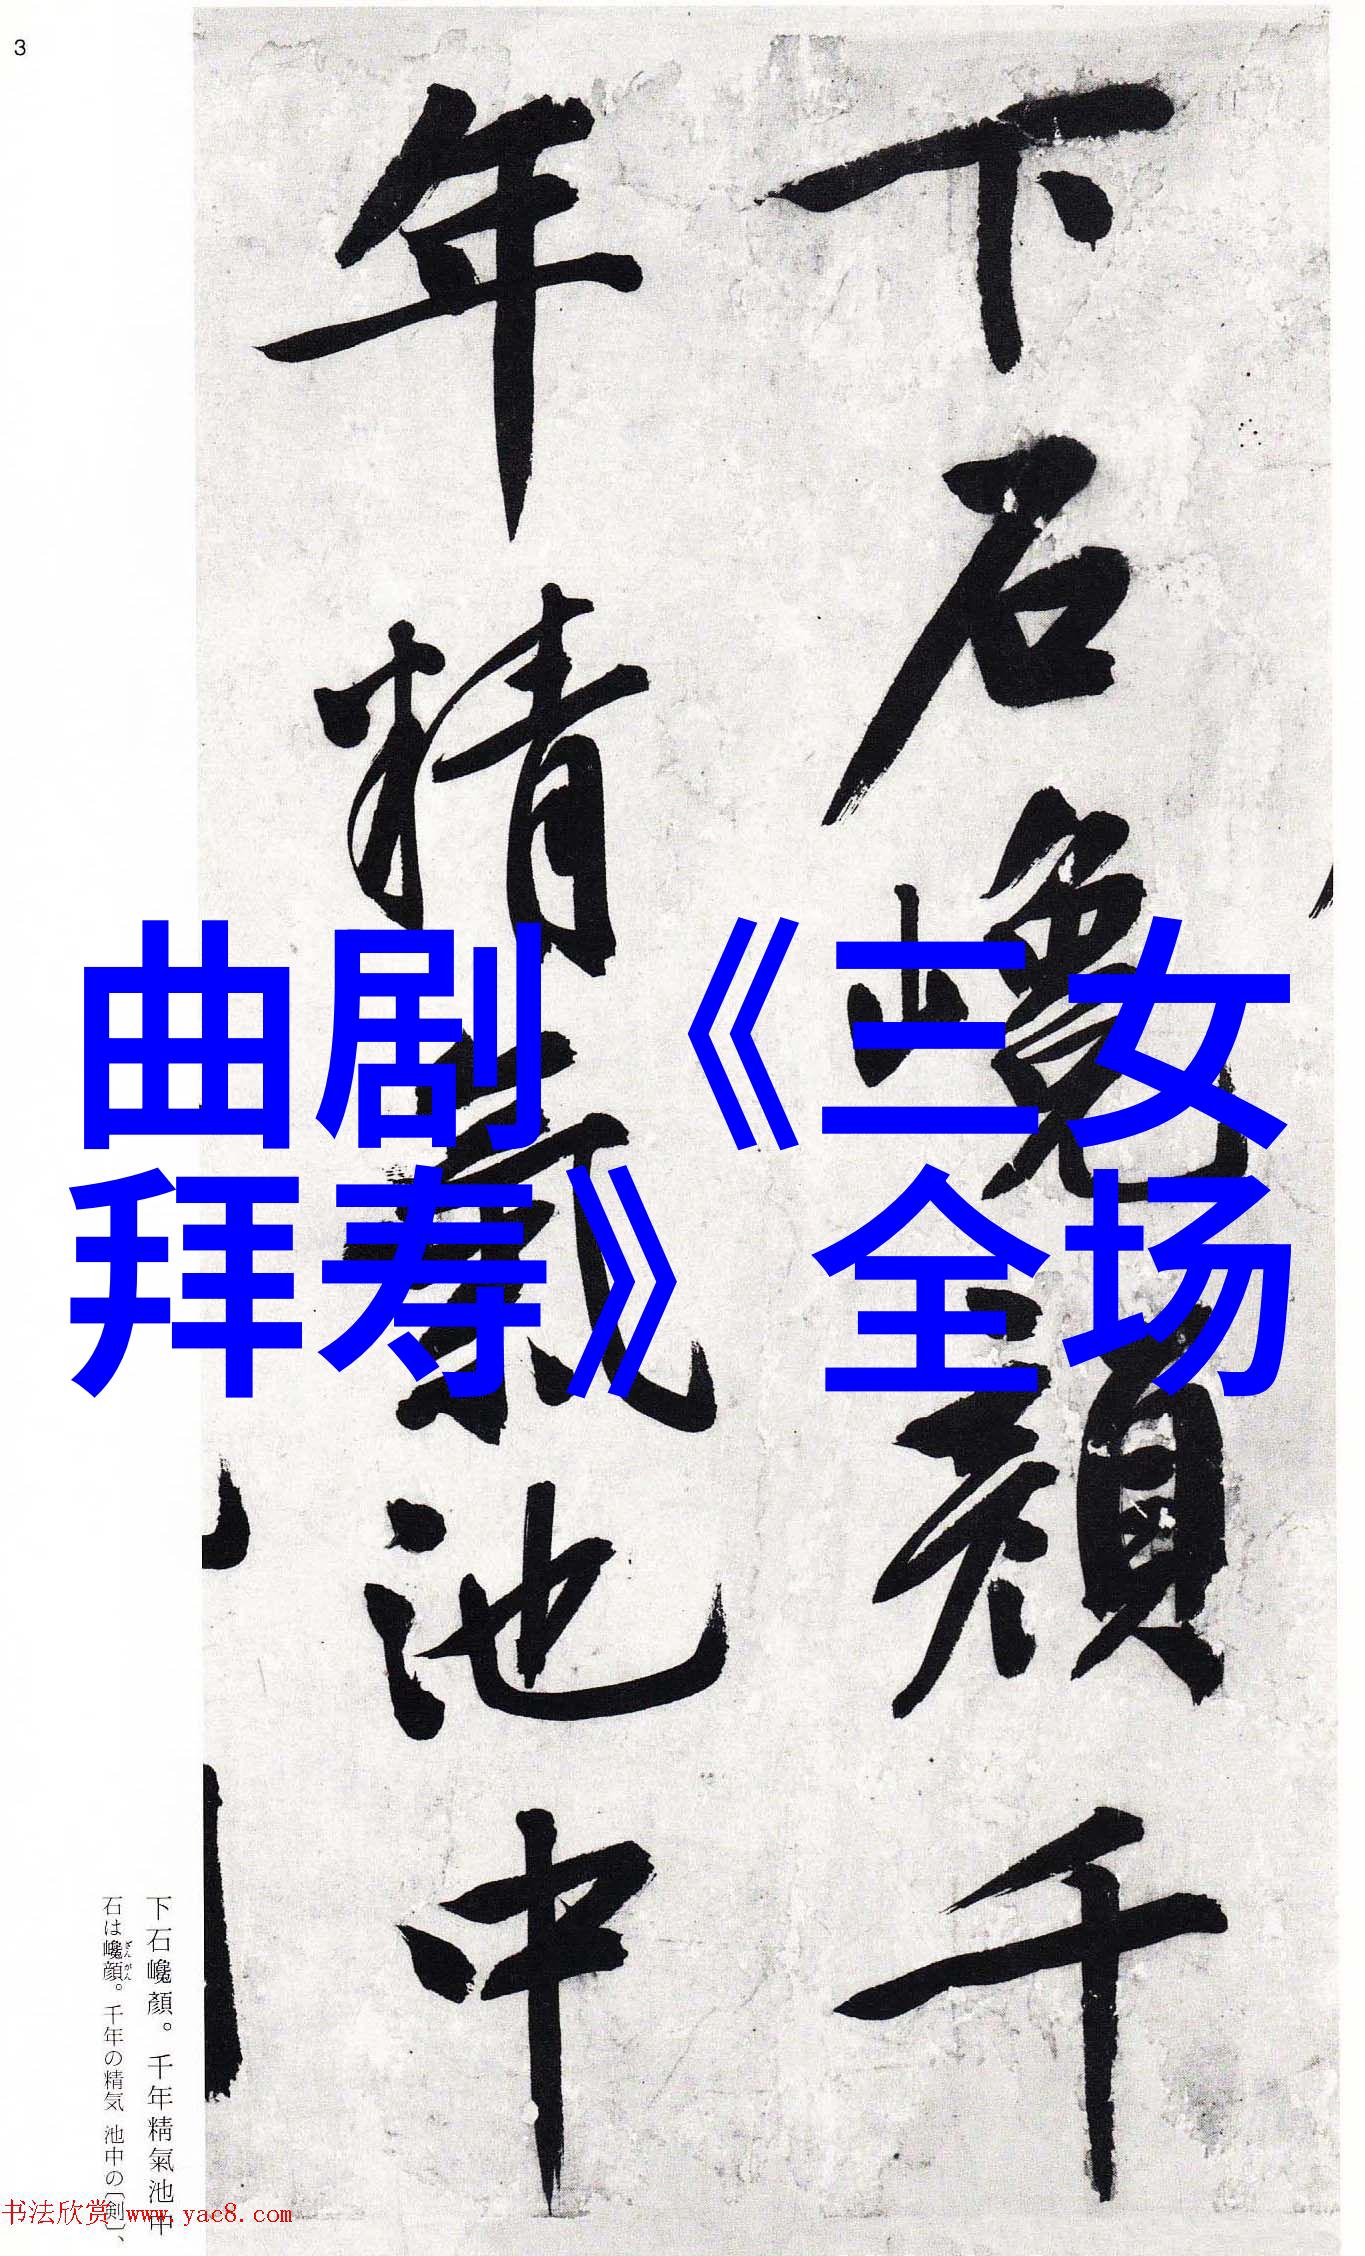 3
下石巉顔千
年精氣池中
曲剧《三女
拜寿》全场
下石巉顏。千年精氣池中
石は巉顔。千年の精気 池中の〔剣〕、
ざんがん
书法欣赏 www.yac8.com